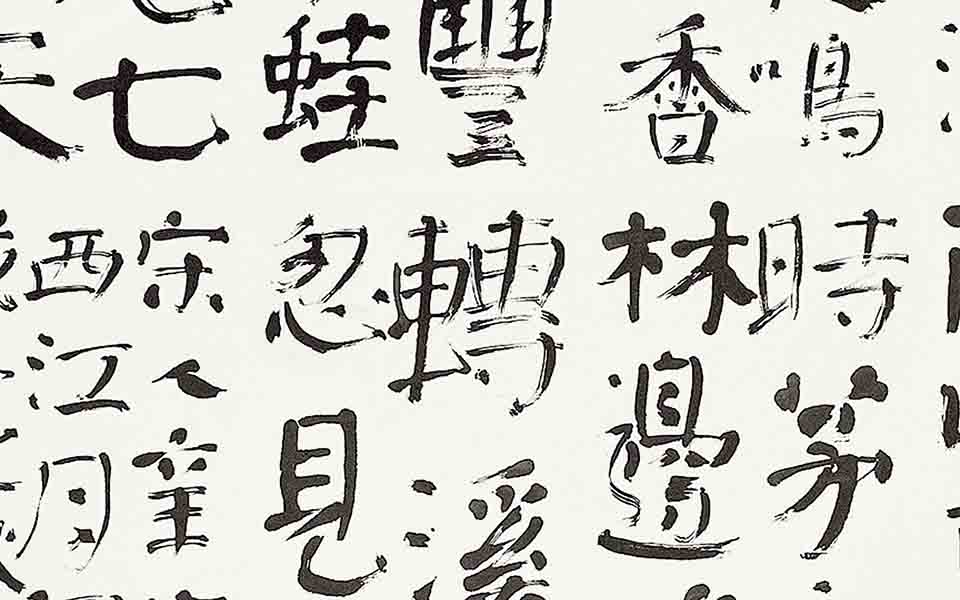 鳴時茅
香林邊
豐轉溪
蛙忽見
七宋人辛
天西江月